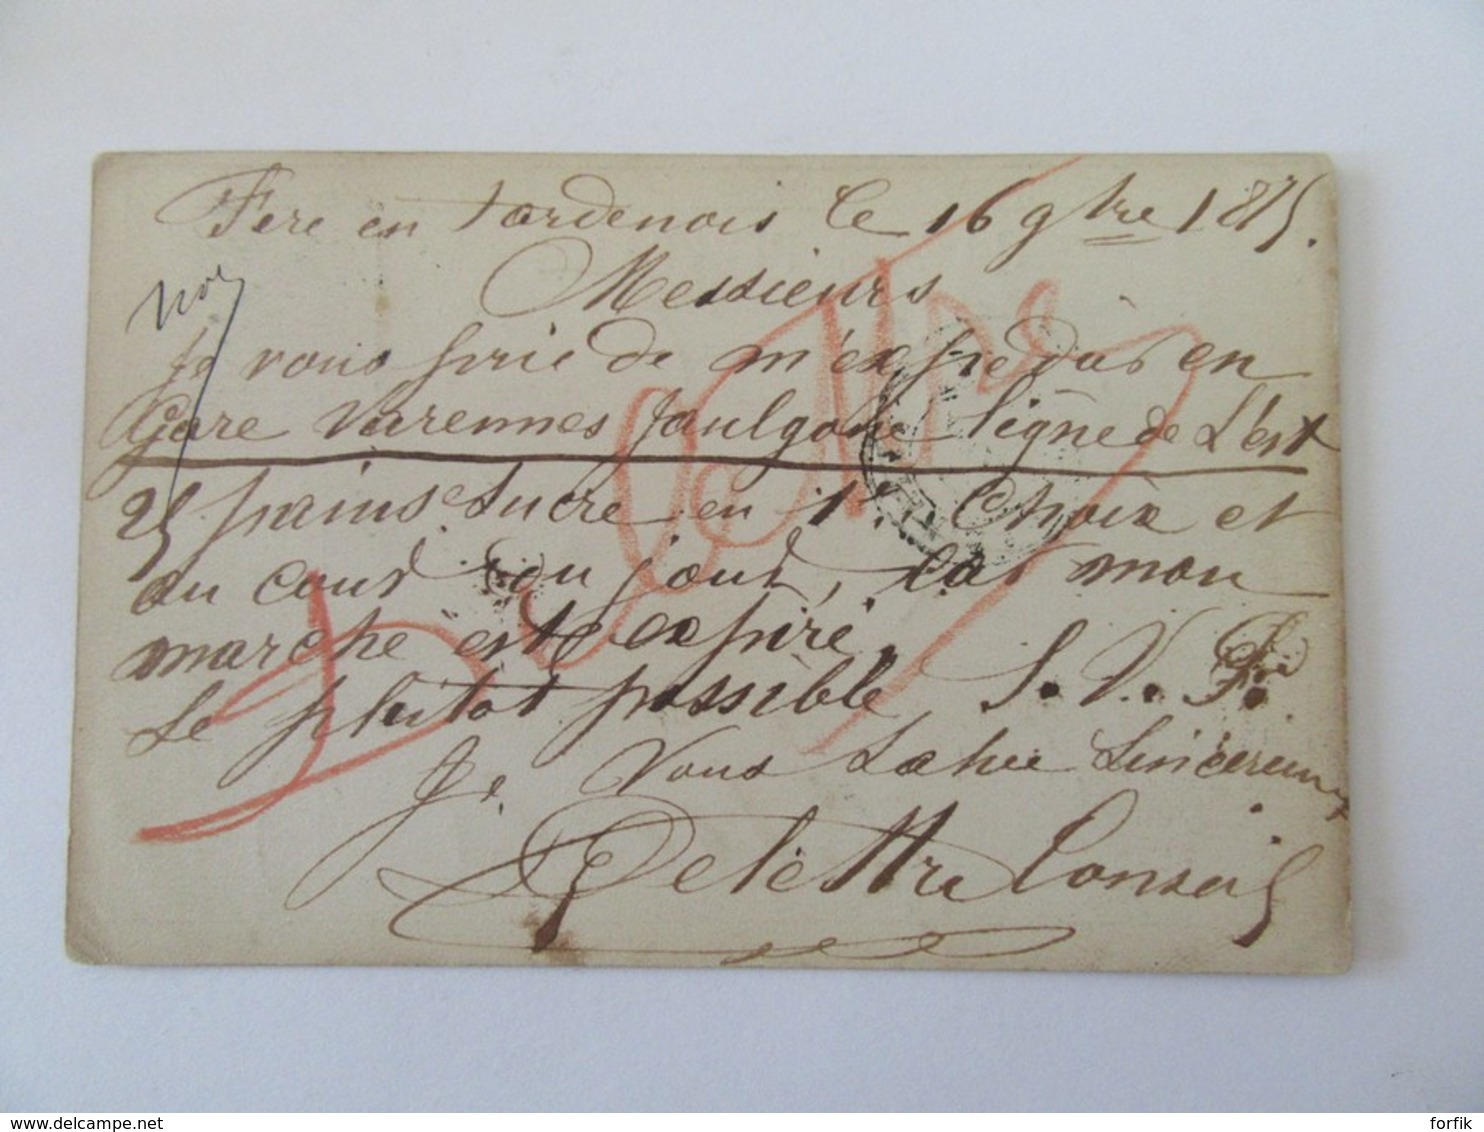 Fère en Tardenois le 16 9bre 1875.
Messieurs
Je vous prie de m'expedier en
Gare Varennes Jaulgone Ligne de L'est
25 pains sucre en 1r Choix et
au cours du jour, car mon
marche est expiré,
Le plutot possible S. V. P.
Je Vous Salue Sincerem
Delettre Conseil
delcampe.net
forfik